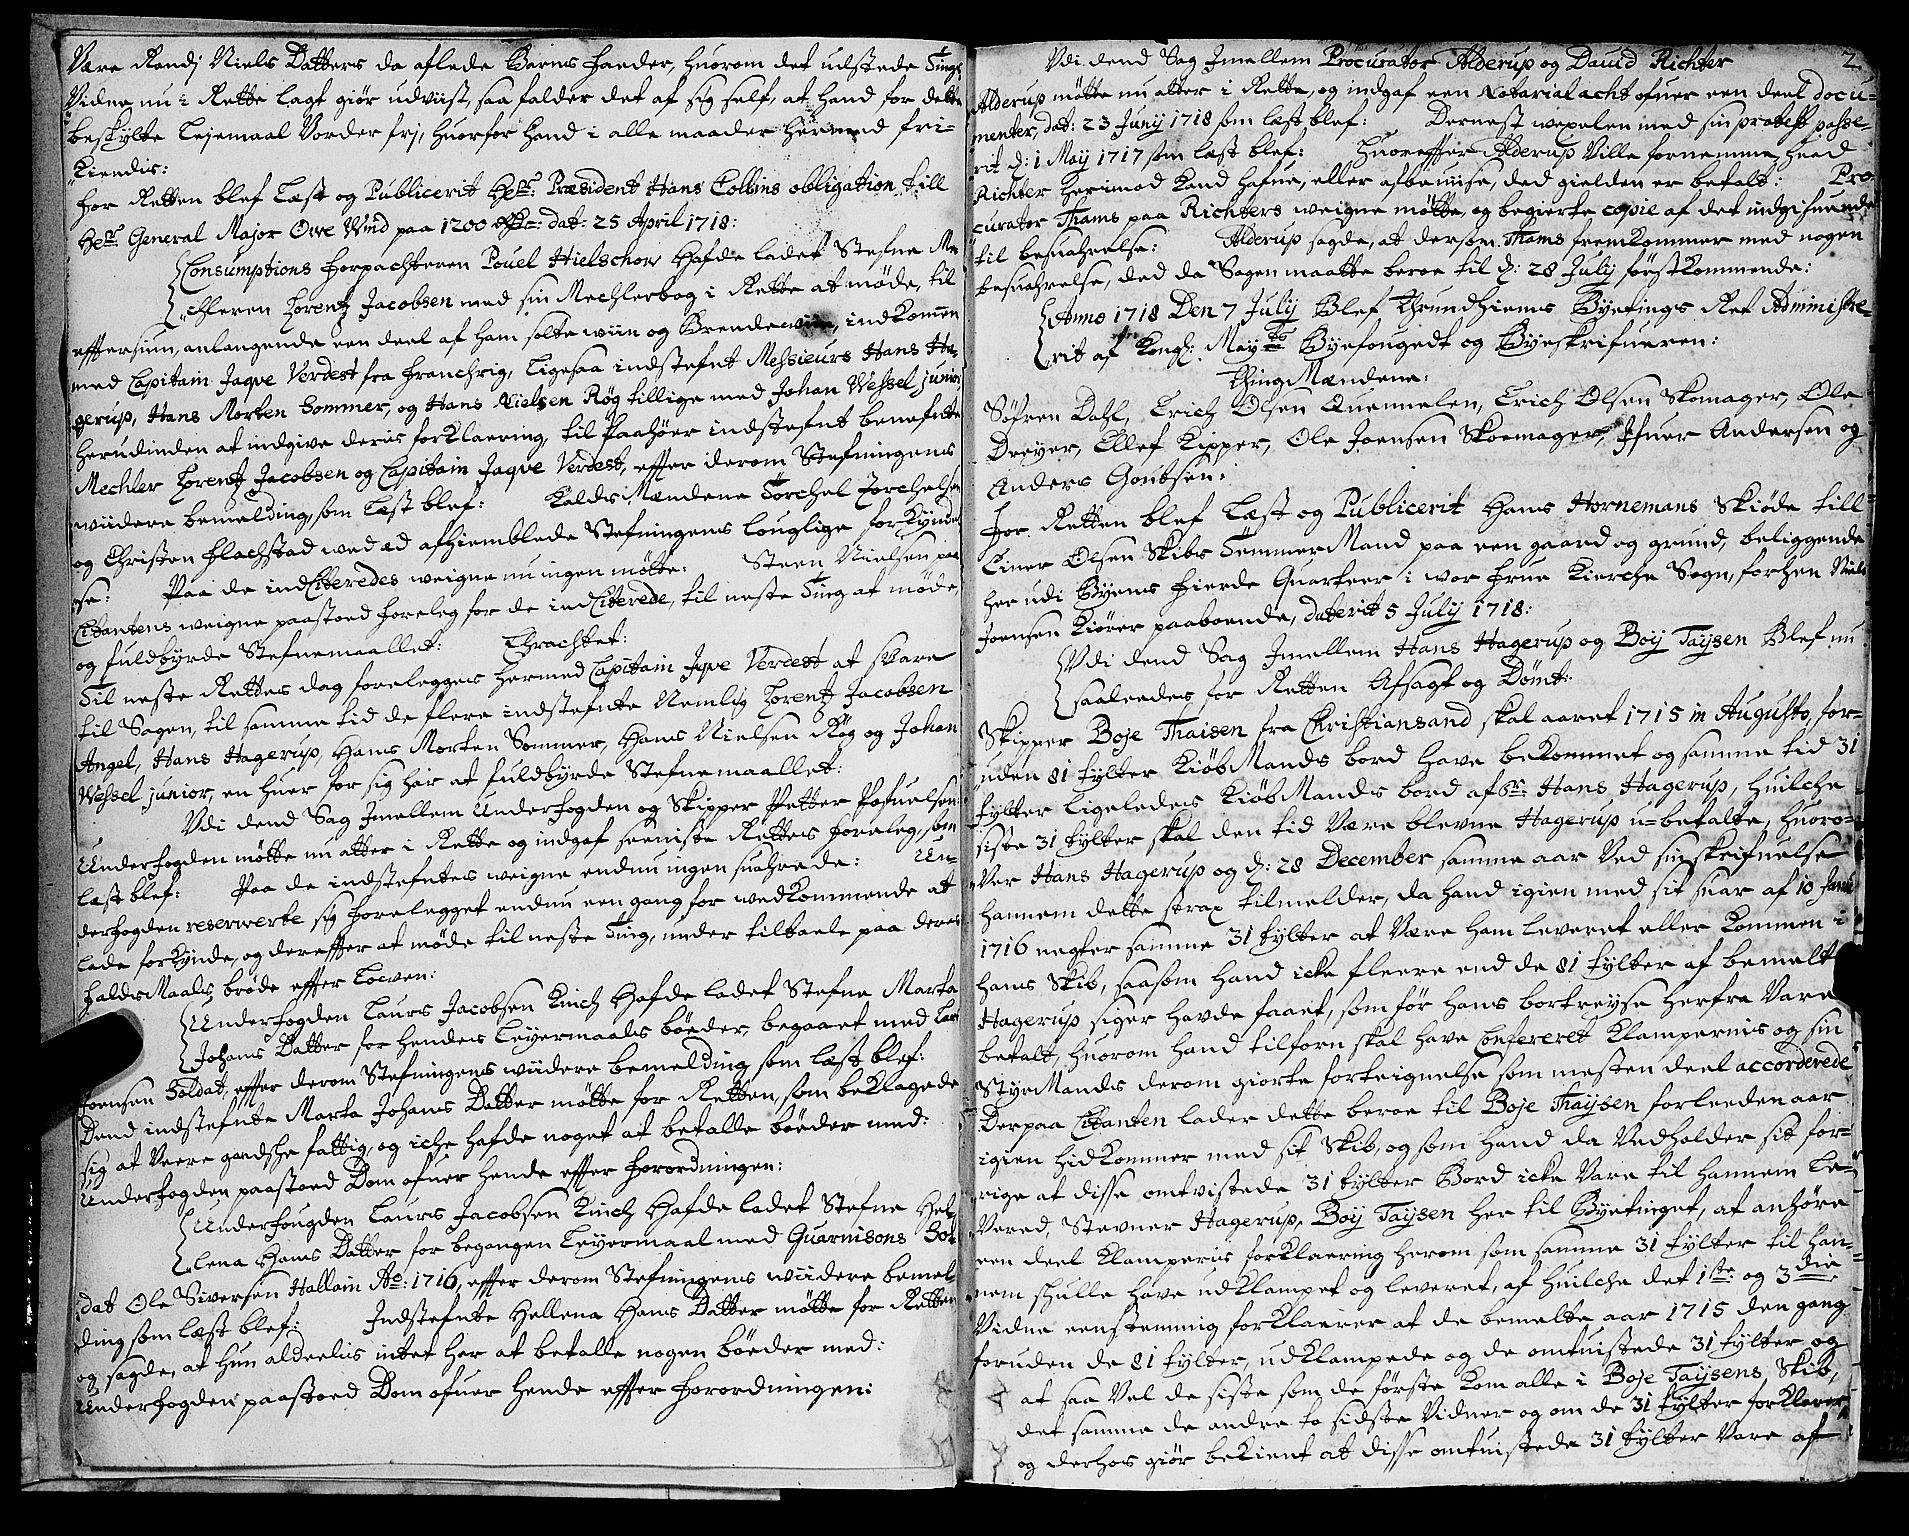 Være Randj Niels Datters da aflede Barns Faeder, huorom det udstede Tings
Vidne nu i Rette lagt giør udviist, saa falder det af sig self, at hand for dette
beskylte Lejemaal Vorder frj, huorfor hand i alle maader hermed fri-
Kiendis:
For Retten blef Læst og Publicerit Hr: Præsident Hans Collins obligation till
Hr: General Major Owe Wind paa 1200 Rdr: dat: 25 April 1718:
Consumptions Forpachteren Pouel Hielschow Hafde ladet Stefne Me-
chleren Lorentz Jacobsen med sin Mechlerbog i Rette at møde, til
efftersiun, anlangende een deel af ham solte wiin og Brendewiin, indkomen
med Capitain Jaqve Verdest fra Franchrig, Ligesaa indstefnt Messieurs Hans Ha-
gerup, Hans Morten Sommer, og Hans Nielsen Røg tillige med Johan Wessel junior
herudinden at indgive deris forklaering, til Paahør indstefnt benefnte
Mechler Lorentz Jacobsen og Capitain Jaqve Verdest, effter derom Stefningens
wiidere bemelding, som Læst blef: Kalds Mændene Torchel Torchelsen
og Christen Flachstad wed æd afhiemblede Stefningens louglige forkynd-
se: Paa de ind Citeredes weigne nu ingen mötte: Steen Nielsen paa
Citantens weigne paastoed foreleg for de ind Citerede, til neste Ting at møde,
og fuldbyrde Stefnemaallet: Thrachtet:
Til neste Rettes dag forelegges hermed Capitain Jqve Verdest at svare
til Sagen, til samme tid de flere indstefnte Nemlig Lorentz Jacobsen
Angel, Hans Hagerup, Hans Morten Sommer, Hans Nielsen Røg og Johan
Wessel junior, en huer for sig her at fuldbyrde Stefnemaallet:
Udi dend Sag Imellem Underfogden og Skipper Petter Pofuelsen
Underfogden mötte nu atter i Rette og indgaf seeniste Rettes foreleg, som
læst blef: Paa de indstefntes weigne endnu ingen suahrede: Un-
derfogden reserwerte sig forelegget endnu een gang for wedkommende at
lade forkynde, og dereffter at møde til neste Ting, under tiltaele paa deres
Falds Maals bröde effter Lowen:
Underfogden Laurs Jacobsen Kinch Hafde ladet Stefne Marta
Johans Datter for hendes Leyermaals böder, begaaet med Lars
Joensen Soldat, effter derom Stefningens wiidere bemelding som læst blef:
Dend indstefnte Marta Johans Datter mötte for Retten, som beklagede
sig at Veere gandsche fattig, og iche hafde noget at betalle böeder med:
Underfogden paastoed Dom ofuer hende effter Forordningen:
Underfougden Laurs Jacobsen Kinch Hafde ladet Stefne Hel-
lena Hans Datter for begangen Leyermaal med Guarnisons Sol-
dat Ole Siversen Hallain Ao: 1716, effter derom Stefningens wiidere bemel-
ding som læst blef: Indstefnte Hellena Hans Datter mötte for Retten
og sagde, at hun aldeelis intet her at betalle nogen böeder med:
Underfogden paastoed Dom ofuer hende effter Forordningen:
2
Udi dend Sag Imellem Procurator Alderup og Dauid Richter
Alderup mötte nu atter i Rette, og indgaf een Notarial acht ofuer een deel docu-
menter, dat: 23 Junij 1718 som læst blef: Dernest wexelen med sin protest passe-
rit d: 1 Maij 1717 som læst blef: Huoreffter Alderup Ville fornemme, huad
Richter herimod kand hafue, eller afbewise, ded gielden er betalt: Pro-
curator Thams paa Richters weigne mötte, og begierte copie af det indgifuende
til besuahrelse: Alderup sagde, at dersom Thams fremkommer med nogen
besuahrelse, ded da Sagen maatte beroe til d: 28 July förstkommende:
Anno 1718 Den 7 Julij Blef Thrundhiems Byetings Ret Administre-
rit af Kongl: Mayts Byefougedt og Byeskrifueren:
Thing Mændene:
Söfren Dahl, Erich Olsen Quennelen, Erich Olsen Skomager, Ole
Dreyer, Ellef Kipper, Ole Joensen Skoemager, Ifuer Andersen og
Anders Goutsen:
For Retten blef Læst og Publicerit Hans Hornemans Skiöde till
Einer Olsen Skibs Tömmer Mand paa een gaard og grund, beliggende
her udi Byens fierde Quarteer i wor Frue Kierche Sogn, forhen Niels
Joensen Kiörer paaboende, daterit 5 Julij 1718:
Udi dend Sag Imellem Hans Hagerup og Boij Taysen Blef nu
saaledes for Retten Afsagt og Dömt:
Skipper Boje Thaisen fra Christiansand skal aaret 1715 in Augusto, for-
uden 81 tylter Kiöb Mands bord have bekommet og samme tid 31
tylter ligeledes Kiöb Mands bord af Sr: Hans Hagerup, huilche
siste 31 tylter skal den tid Være blevne Hagerup u-betalte, huoro-
Ver Hans Hagerup og d: 28 December samme aar Ved sin skrifuelse
hannem dette strax tilmelder, da hand igien med sit suar af 10 Janu:
1716 negter samme 31 tylter at Være ham leveret eller kommen i
hans Skib, saasom hand icke fleere end de 81 tylter af bemelt
Hagerup siger havde faaet, som för hans bortreyse herfra Vare
betalt, huorom hand tilforn skal have Confereret Klampernis og sin
Styr Mands derom giorte forteignelse som mesten deel accorderede
Derpaa Citanten lader dette beroe til Boje Thaysen forleeden aar
igien hidkommer med sit Skib, og som hand da Vedholder sit for-
rige at disse omtvistede 31 tylter Bord icke Vare til hannem le-
Vered, Stevner Hagerup, Boij Taysen her til Byetinget, at anhöre
een deel Klamperis forklaering herom som samme 31 tylter til han-
nem skulle have udklampet og leveret, af huilche det 1ste og 3die
Vidne eenstemmig forklaerer at de bemelte aar 1715 den gang
foruden de 81 tylter, udklampede og de omtuistede 31 tylter og
at saa Vel de siste som de förste kom alle i Boje Taysens, Skib,
det samme de andre to sidste Vidner og om de 31 tylter forklarer
og derhos giör bekient at disse omtuistede 31 tylter Vare af